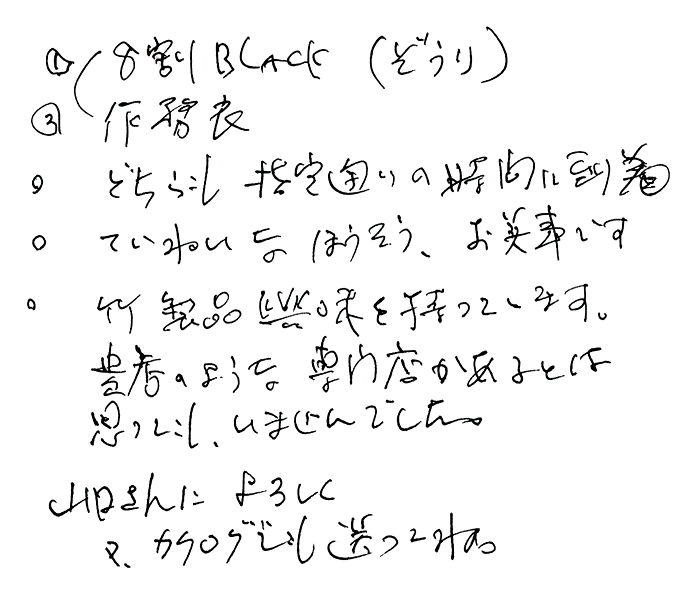 ① 8割BLACK (ぞうり)
③ 作務衣
○ どちらも 指定通りの時間に到着
○ ていねいな ほうそう、お美事です
○ 竹製品に興味を持っています。
貴店のような専門店があるとは
思っても、いませんでした。
さんに よろしく
又、カタログでも送ってネ。